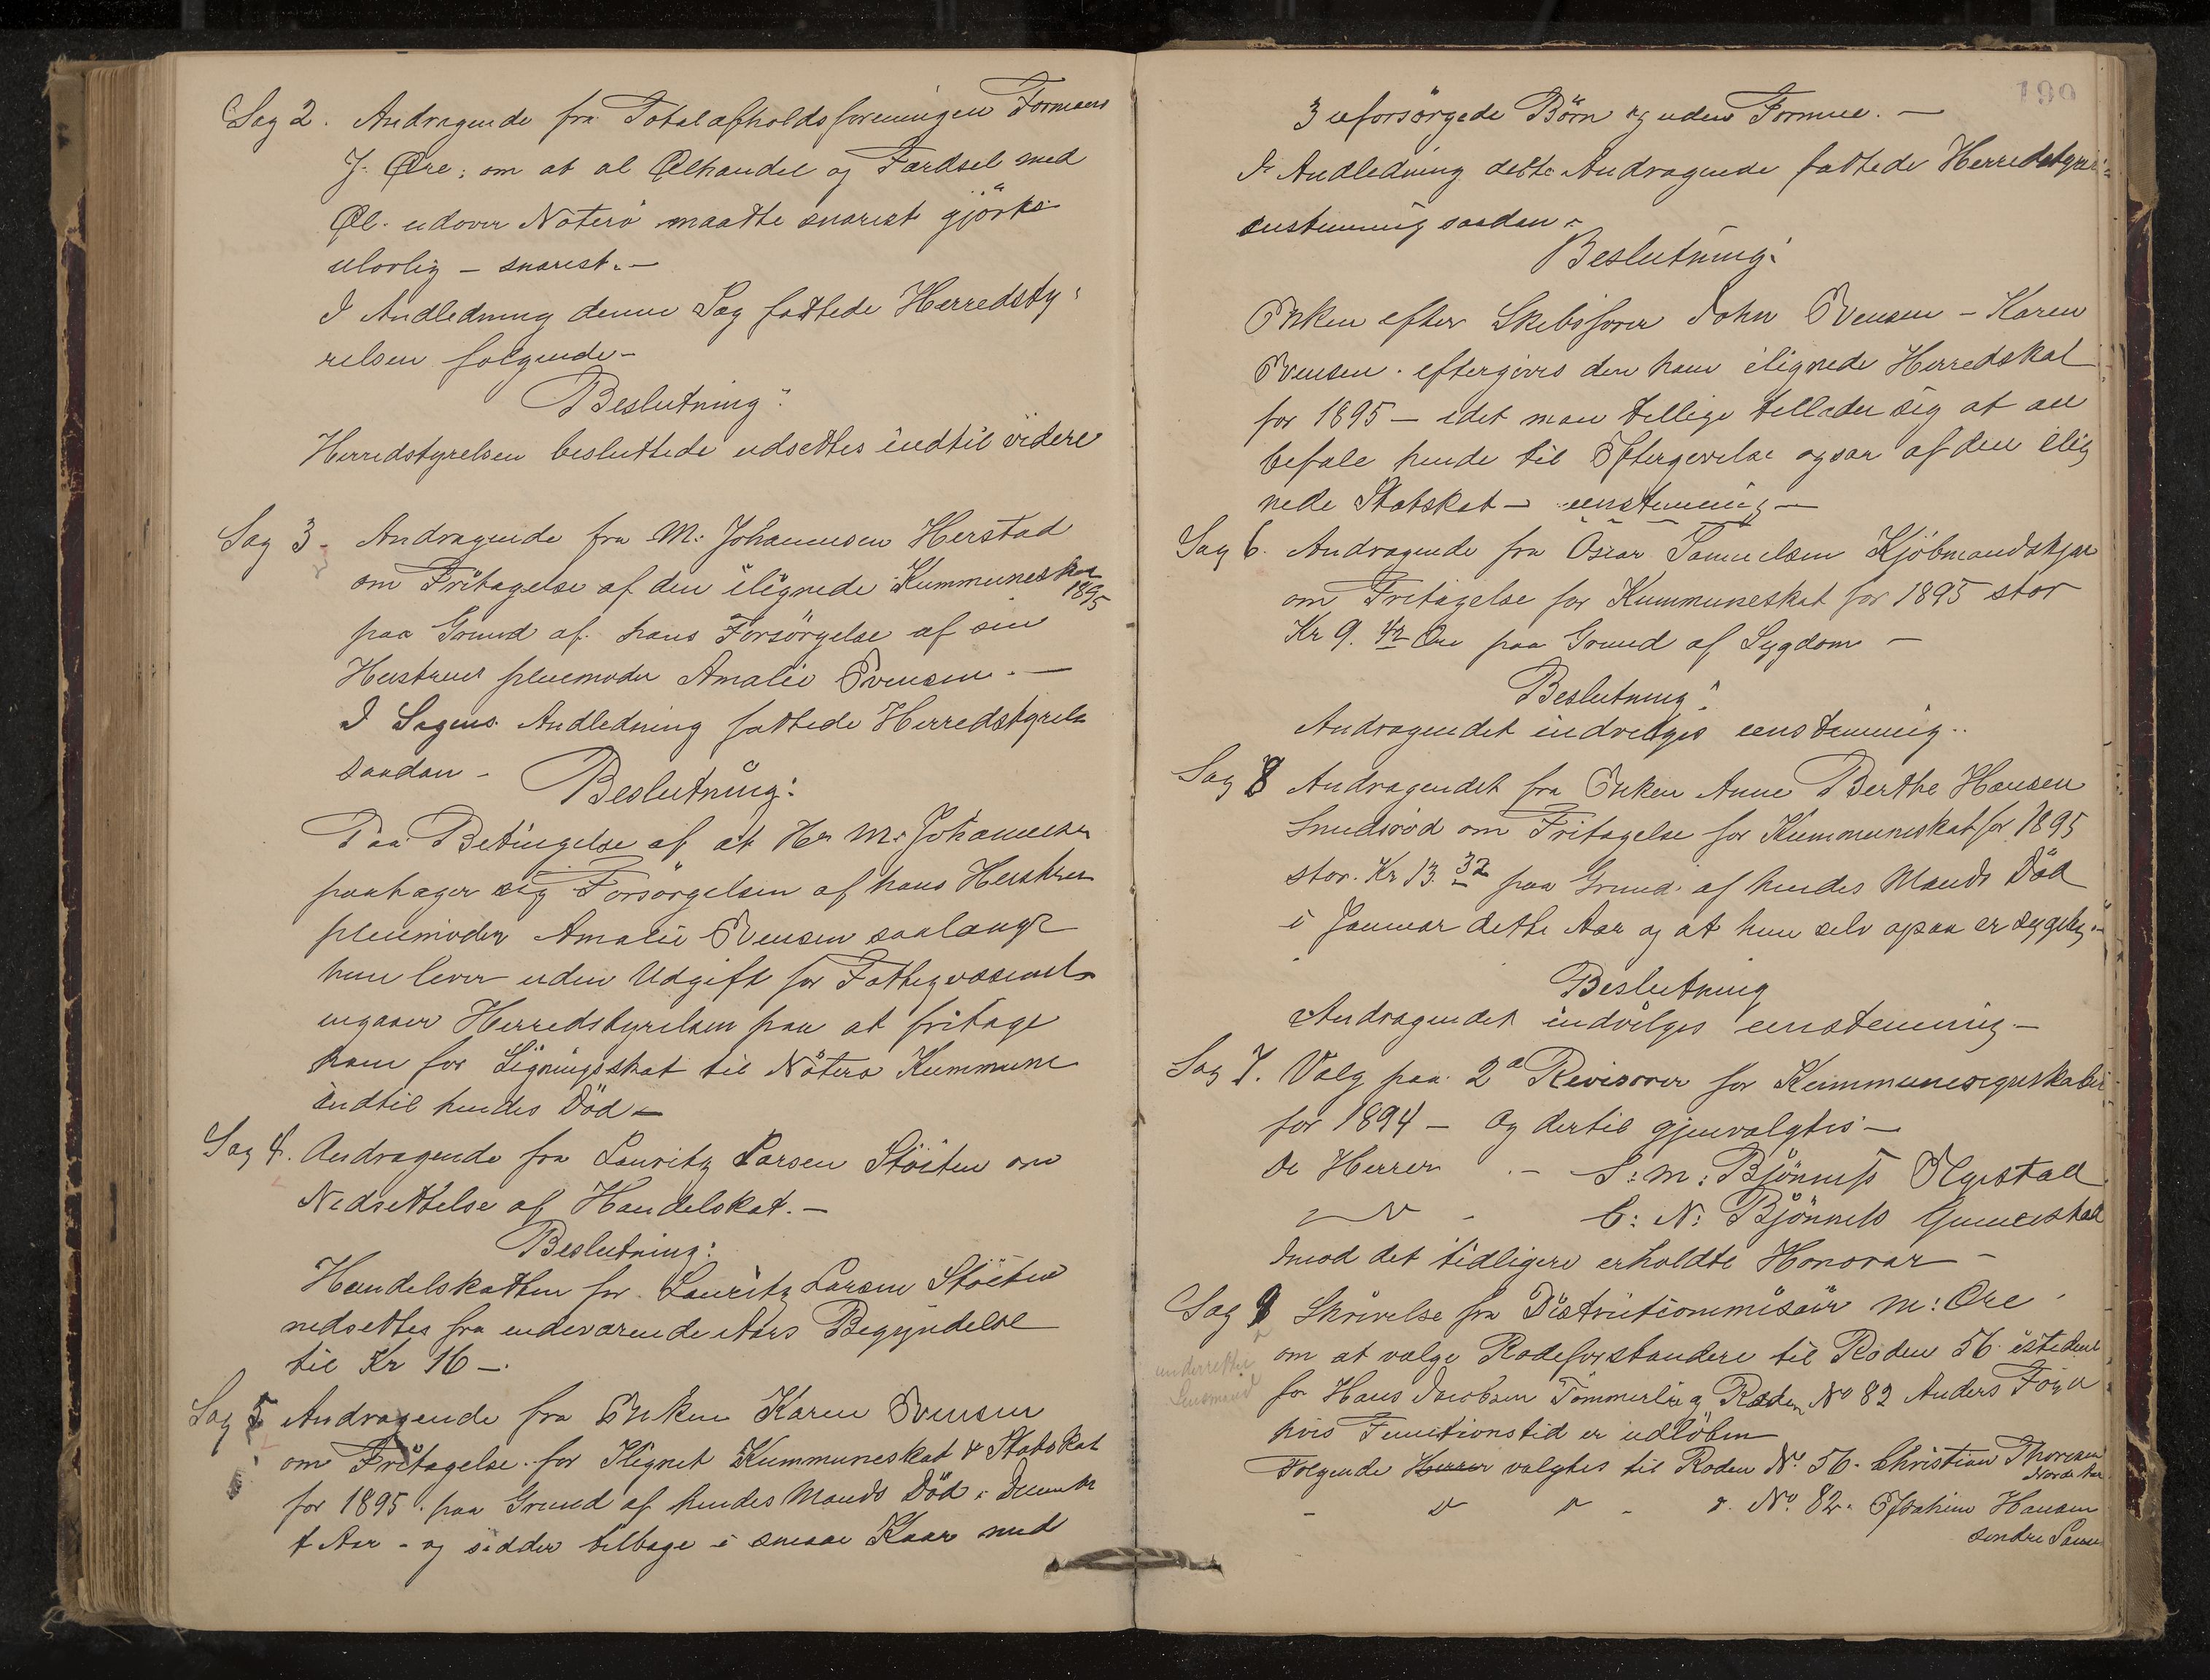 Sag 2. Andragende fra Totalafholdsforeningen Formans
J. Øre; om at al Ølhandel og Færdsel med
Øl. udover Nøterö maatte snarest gjörks
ulovlig - snarest. -
I Andledning denne Sag fattede Herredsty-
relsen følgende -
Beslutning:
Herredstyrelsen besluttede udsettes indtil videre
Sag 3 - Andragende fra M. Johannesen Herstad
om Fritagelse af den ilignede Kummuneskat
1895
paa Grund af hans Forsörgelse af sin
Hustrues pleiemoder Amalie Evensen. -
I Sagens Andledning fattede Herredstyrels
saadan - Beslutning:
Paa Betingelse af at Hr M. Johannesen
paatager sig Forsörgelsen af hans Hustrues
pleiemoder Amalie Evensen saalænge
hun lever uden Udgift for Fattigvæsenet
ingaaer Herredstyrelsen paa at fritage
ham for Ligningsskat til Nöterø Kummune
indtil hendes Död -
Sag 4. Andragende fra Lauritz Larsen Stöiten om
Nedsettelse af Handelskat. -
Beslutning:
Handelskatten for Lauritz Larsen Stöiten
nedsettes fra indeværende Aars Begyndelse
til Kr 16 -.
Sag 5 Andragende fra Enken Karen Evensen
om Fritagelse for Ilignet Kummuneskat & Statskat
for 1895 paa Grund af hendes Mands Död i Decembr
f Aar - og sidder tilbage i smaae Kaar med
190
3 uforsörgede Börn og uden Formue. -
I Andledning dette Andragende fattede Herredstyrel-
senstemmig saadan -
Beslutning:
Enken efter Skibsförer John Evensen - Karen
Evensen. eftergives den ham ilignede Herredskat
for 1895 - idet man tillige tillader sig at an
befale hende til Eftergivelse ogsaa af den ilig
nede Statskat - eenstemmig -
Sag 6. Andragende fra Oscar Samuelsen Kjöbmandskjær
om Fritagelse for Kummuneskat for 1895 stor
Kr 9. 42 Øre paa Grund af Sygdom -
Beslutning:
Andragendet indvilges eenstemmig..
Sag 8 Andragendet fra Enken Anne Berthe Hansen
Smidsröd om Fritagelse for Kummuneskat for 1895
stor. Kr 13. 32 paa Grund af hendes Mands Död
i Januar dette Aar og at hun selv ogsaa er sygelig -
Beslutning
Andragendet indvilges eenstemmig -
Sag 7. Valg paa 2 Revisorer for Kummuneregnskabet
for 1894 - og dertil gjenvalgtes -
De Herrer - S: M: Bjönness Elgestad
- C: N: Bjönness Gunnestad
Imod det tidligere erholdte Honorar -
Sag 9 Skrivelse fra Districtcommisair M: Øre
underrettet
Lensmand
om at vælge Rodeforstandere til Roden 56 istedent
for Hans Jacobsen Tömmerlie og Roden No 82 Anders Föien
hvis Functionstid er udlöben
Følgende Herrer valgtes til Roden No. 56. Christian Thoresen
Nordre
- " " - " No. 82. Joachim Hansen
söndre